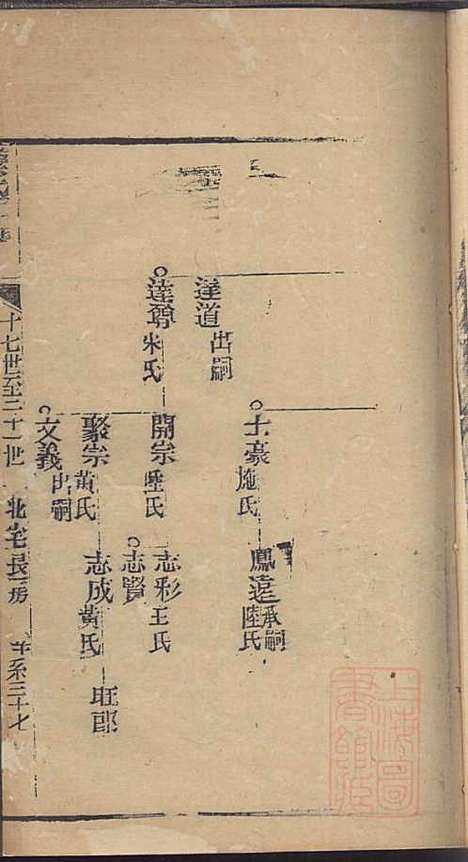 士豪 施氏
鳳遠 承嗣 陸氏
達道 出嗣
達尊 朱氏
開宗 陸氏
志彩 王氏
志賢
聚宗 黃氏
志成 黃氏
旺郎
文義 出嗣
十七世至二十一世 北宅長房 世系三十七
上海圖書館藏